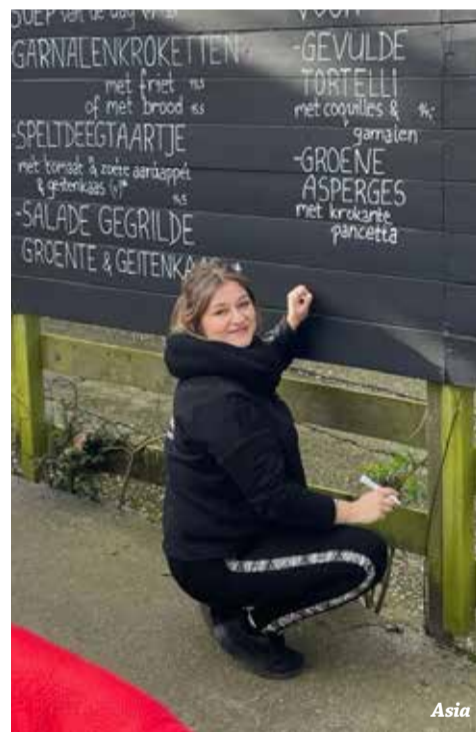 SOEP van de dag
-GARNALENKROKETTEN
met friet
of met brood
-SPELTDEEGTAARTJE
met tomaat & zoete aardappel
& geitenkaas (v)*
-SALADE GEGRILDE
GROENTE & GEITENKAAS
VOOR
-GEVULDE
TORTELLI
met coquilles &
garnalen
-GROENE
ASPERGES
met krokante
pancetta
Asia